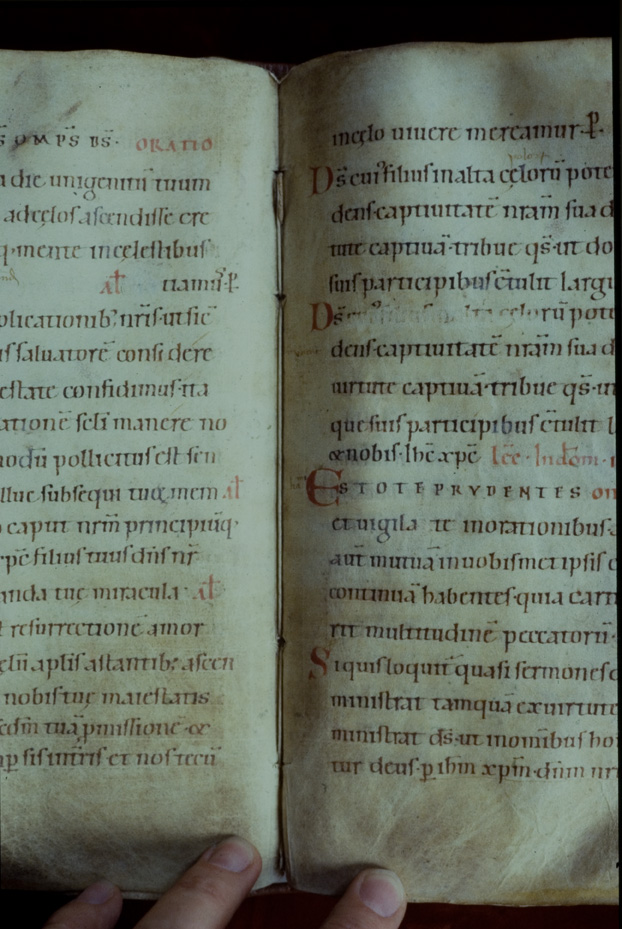 OMPS DS. ORATIO
a die unigenitū tuum
adcęlos ascendisse cre
q; mente incęlestibus
al uamur P
plicationib; nr̄is ut sic
saluatorē consi dere
estate confidimus ita
ationē sc̄li manere no
modū pollicitus est seu
illuc subsequi tuā mem al
caput nr̄m principiūq·
xp̄e filius tuus dn̄s nr̄
anda tuę miracula al
resurrectionē amor
aplīs astantib; ascen
nobis tuę maiestatis
sedm̄ tuā p̄missionē &
sis intr̄is et nos tecū
incęlo uiuere mereamur· P·
Ds̄ cui' filius inalta cęlorū pote
dens captiuitatē nr̄am sua d
tute captiuā· tribue qs̄· ut do
suis participibus c̄tulit largi
Ds̄ cęlorū pote
dens captiuitatē nr̄am sua d
uirtute captiuā· tribue qs̄· ut
que suis participibus c̄tulit l
& nobis· ihc̄ xp̄c
ESTOTE PRVDENTES
et uigila te inorationibus·
aut̄ mutuā inuobismet ipsis c
continuā habentes· quia cari
rit multitudinē peccatorū·
Siquis loquit̄ quasi sermones d
ministrat tamquā exuirtute
ministrat ds̄· ut inomibus ho
tur deus· p̄ ihm̄ xp̄m· dn̄m nr